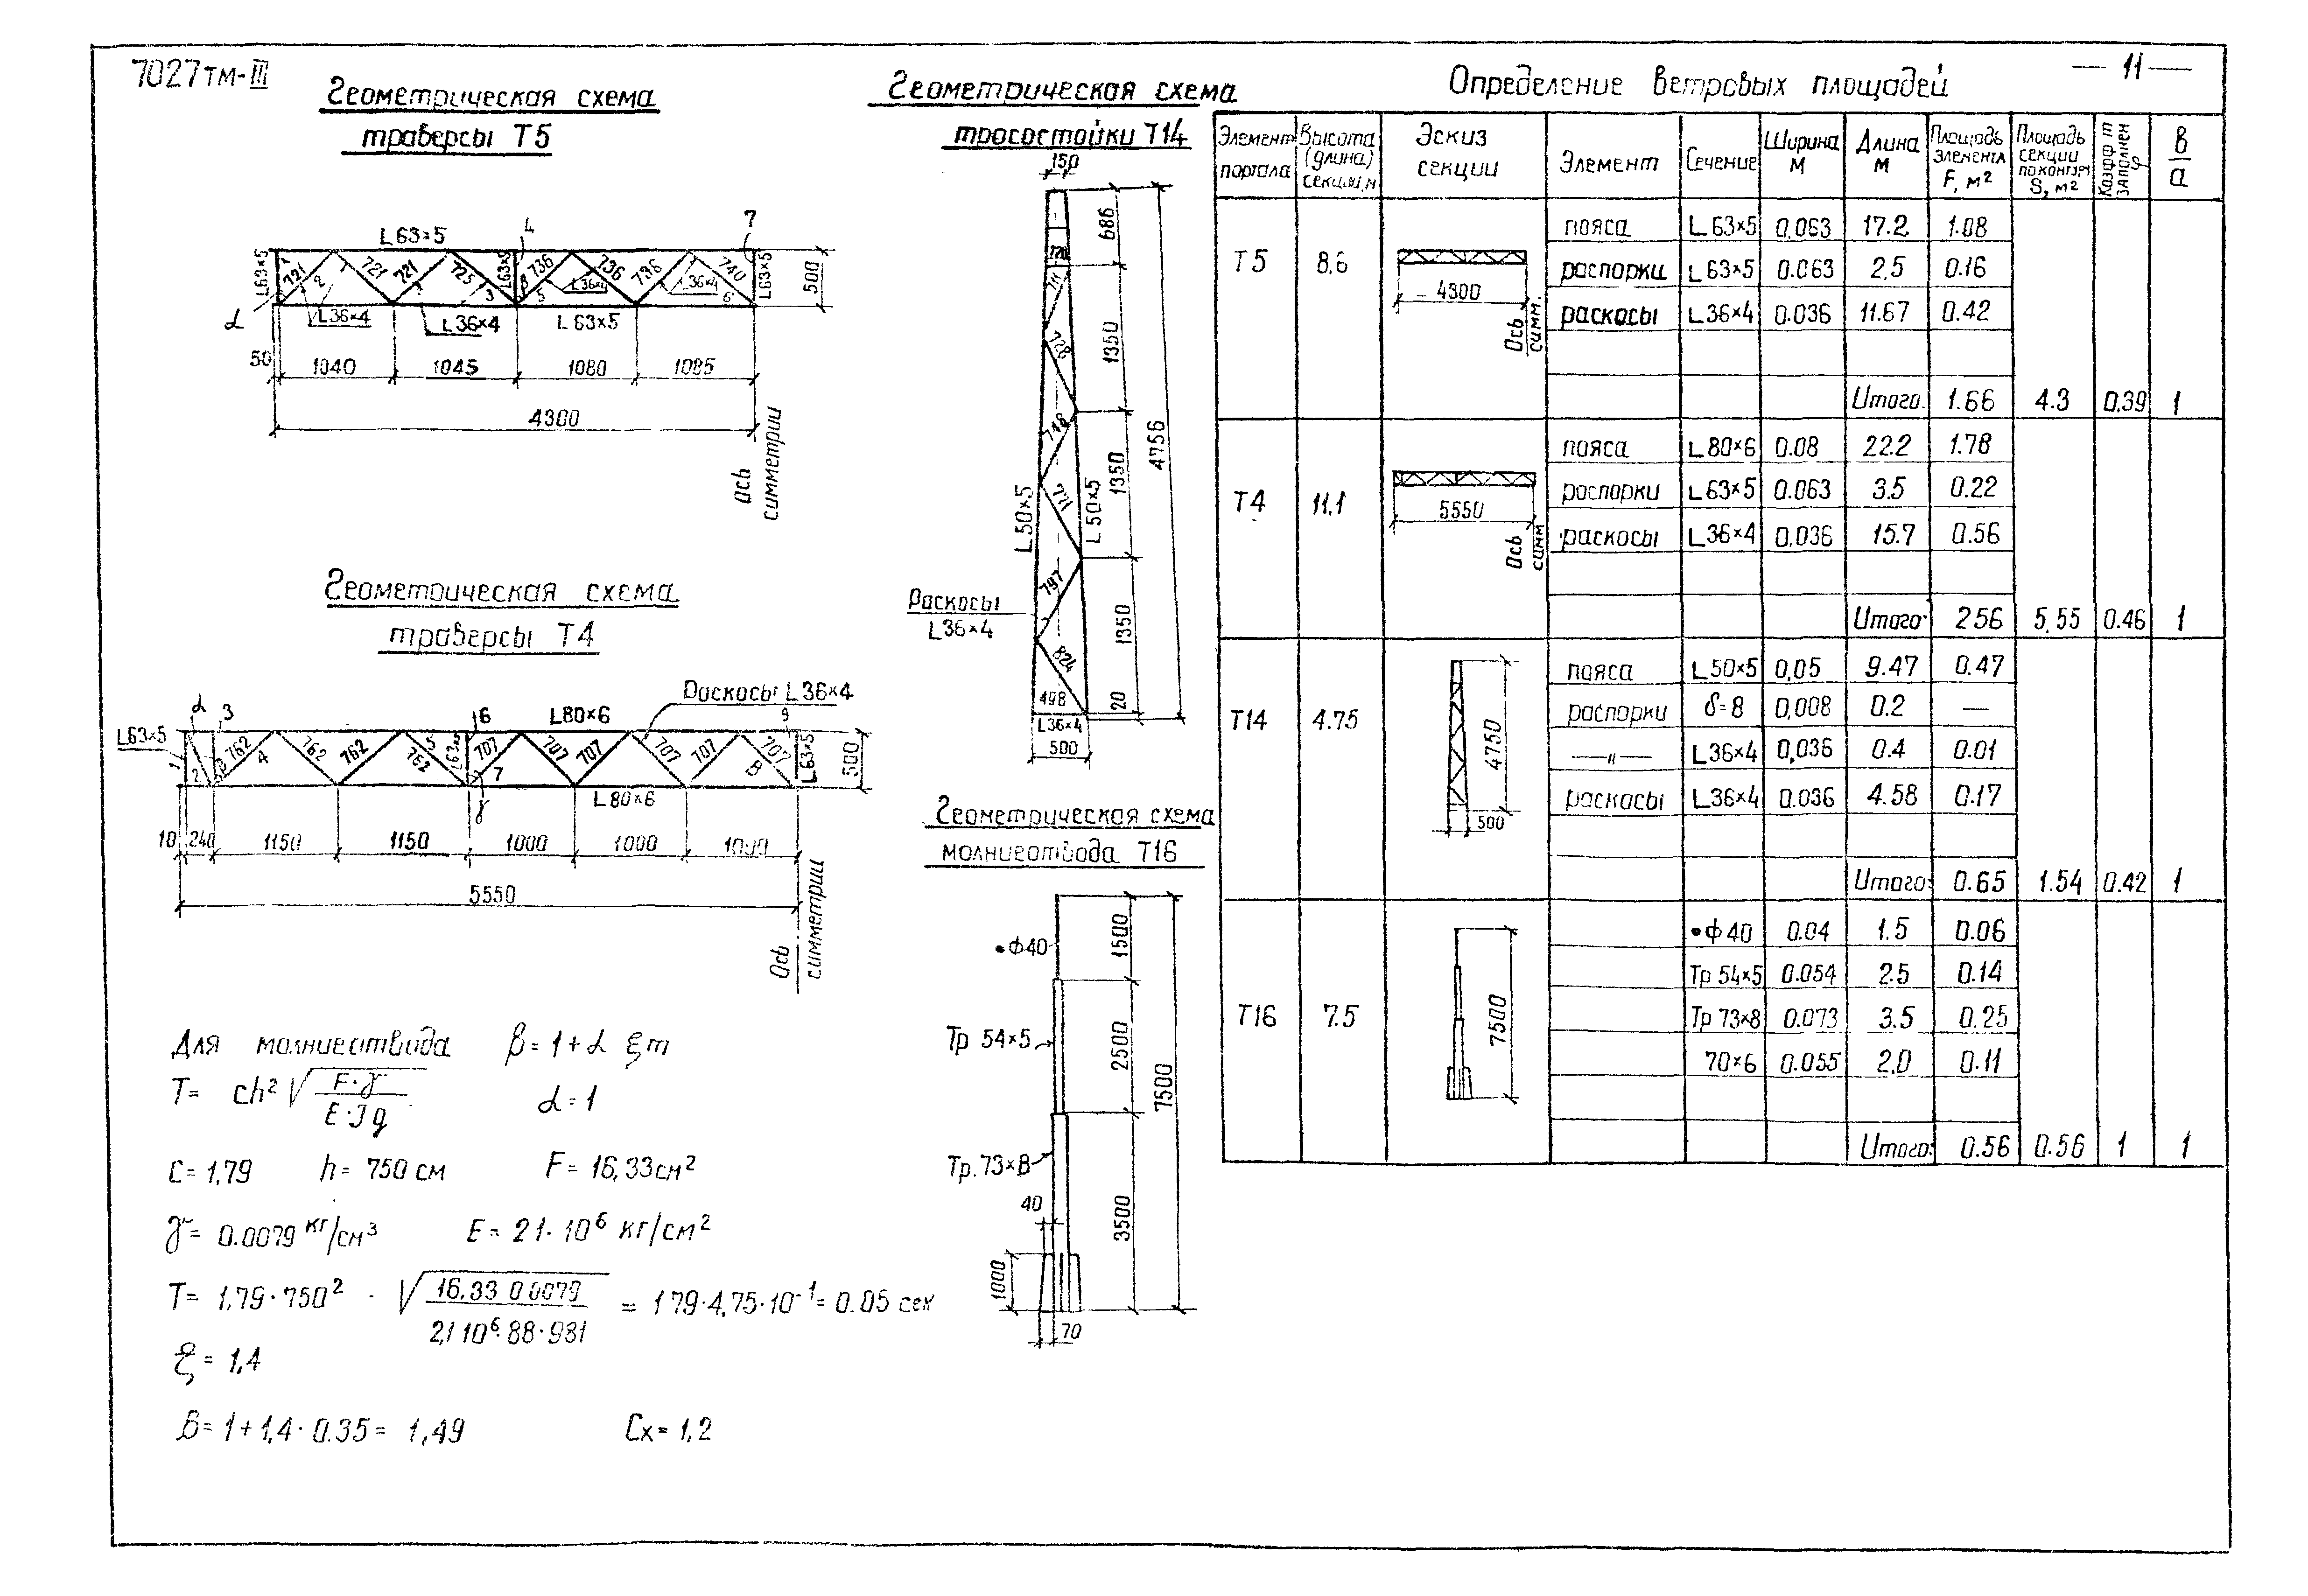 7027тм-III
— 11 —
Геометрическая схема
траверсы Т5
L63×5
4
7
L63×5
721
2
721
721
725
3
L63×5
736
5
736
736
740
6
L63×5
500
α
L36×4
L36×4
L63×5
L36×4
L36×4
50
1040
1045
1080
1085
4300
Ось
симметрии
Геометрическая схема
траверсы Т4
Раскосы L36×4
α
3
6
L80×6
9
L63×5
1
2
762
4
762
762
5
762
L63×5
707
7
707
707
707
707
707
8
L63×5
500
γ
L80×6
10
240
1150
1150
1000
1000
1000
5550
Ось
симметрии
Для молниеотвода β = 1 + α ξ m
T = ch² √ F·γ / E·J g
α = 1
C = 1,79 h = 750 см F = 16,33 см²
γ = 0.0079 кг/см³ E = 21·10⁶ кг/см²
T = 1,79·750² · √ 16,33 0.0079 / 2,1 10⁶·88·981 = 1 79·4,75·10⁻¹ = 0.05 сек
ξ = 1,4
β = 1 + 1,4·0.35 = 1,49 Cx = 1,2
Геометрическая схема
тросостойки Т14
150
686
728
748
771
797
824
498
1350
1350
1350
20
4756
L50×5
L50×5
Раскосы
L36×4
L36×4
500
Геометрическая схема
молниеотвода Т16
•Ф40
Тр 54×5
Тр.73×8
1500
2500
3500
7500
40
1000
70
Определение ветровых площадей
Элемент портала Высота (длина) секции, м Эскиз секции Элемент Сечение Ширина м Длина м Площадь элемента F, м² Площадь секции по контуру S, м² Коэфф т заполнен в/а
Т5 8,6 пояса L63×5 0,063 17.2 1.08
распорки L63×5 0.063 2,5 0.16
раскосы L36×4 0.036 11.67 0.42
4300
Ось
симм.
Итого. 1.66 4.3 0,39 1
Т4 11,1 пояса L80×6 0.08 22.2 1.78
распорки L63×5 0.063 3.5 0.22
раскосы L36×4 0,036 15.7 0.56
5550
Ось
симм
Итого: 2 56 5,55 0.46 1
Т14 4.75 пояса L50×5 0,05 9.47 0.47
распорки δ=8 0,008 0.2 —
—"— L36×4 0,036 0.4 0.01
раскосы L36×4 0.036 4.58 0.17
4750
500
Итого: 0.65 1.54 0.42 1
Т16 7.5 •ф40 0.04 1.5 0.06
Тр 54×5 0.054 2.5 0.14
Тр 73×8 0.073 3.5 0.25
70×6 0.055 2,0 0.11
7500
Итого: 0.56 0.56 1 1